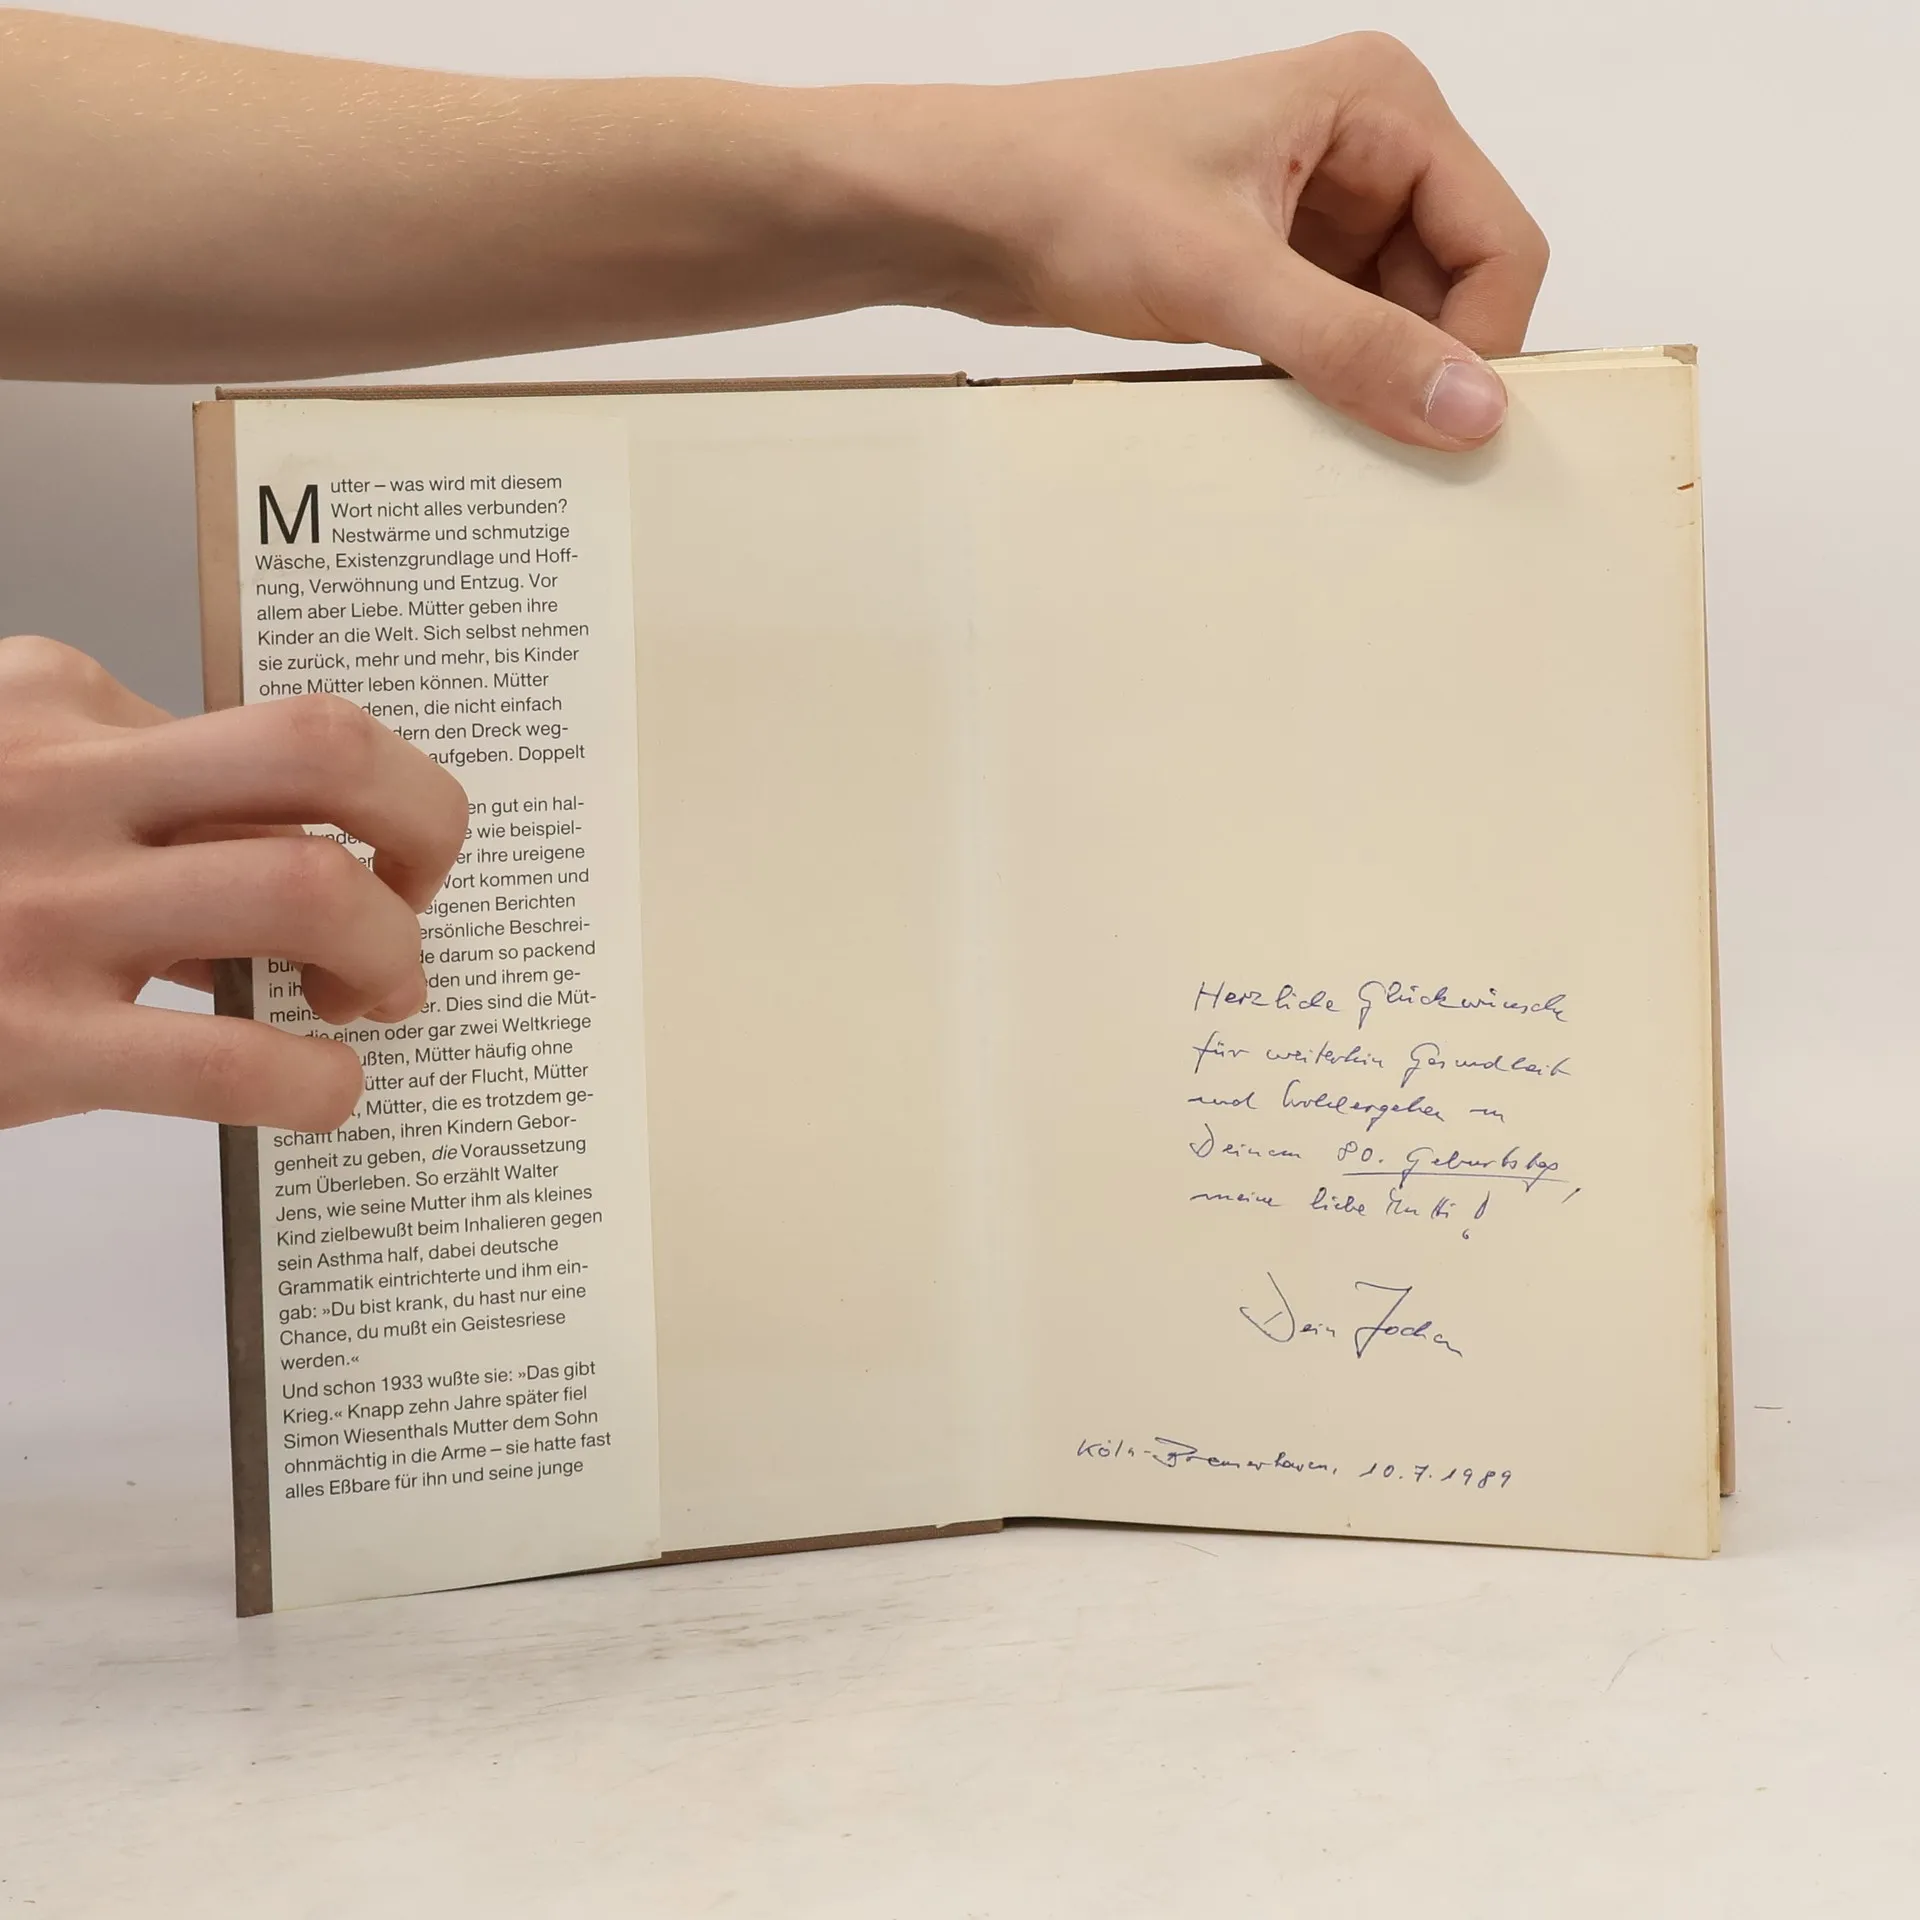 Mutter – was wird mit diesem
Wort nicht alles verbunden?
Nestwärme und schmutzige
Wäsche, Existenzgrundlage und Hoff-
nung, Verwöhnung und Entzug. Vor
allem aber Liebe. Mütter geben ihre
Kinder an die Welt. Sich selbst nehmen
sie zurück, mehr und mehr, bis Kinder
ohne Mütter leben können. Mütter
denen, die nicht einfach
dern den Dreck weg-
aufgeben. Doppelt
en gut ein hal-
wie beispiel-
er ihre ureigene
Wort kommen und
eigenen Berichten
ersönliche Beschrei-
de darum so packend
in ih eden und ihrem ge-
meins er. Dies sind die Müt-
die einen oder gar zwei Weltkriege
ußten, Mütter häufig ohne
ütter auf der Flucht, Mütter
, Mütter, die es trotzdem ge-
schafft haben, ihren Kindern Gebor-
genheit zu geben, die Voraussetzung
zum Überleben. So erzählt Walter
Jens, wie seine Mutter ihm als kleines
Kind zielbewußt beim Inhalieren gegen
sein Asthma half, dabei deutsche
Grammatik eintrichterte und ihm ein-
gab: »Du bist krank, du hast nur eine
Chance, du mußt ein Geistesriese
werden.«
Und schon 1933 wußte sie: »Das gibt
Krieg.« Knapp zehn Jahre später fiel
Simon Wiesenthals Mutter dem Sohn
ohnmächtig in die Arme – sie hatte fast
alles Eßbare für ihn und seine junge
Herzliche Glückwünsche
für weiterhin Gesundheit
und Wohlergehen zu
Deinem 80. Geburtstag,
meine liebe Mutti!
Dein Jochen
Köln-Bremerhaven, 10.7.1989